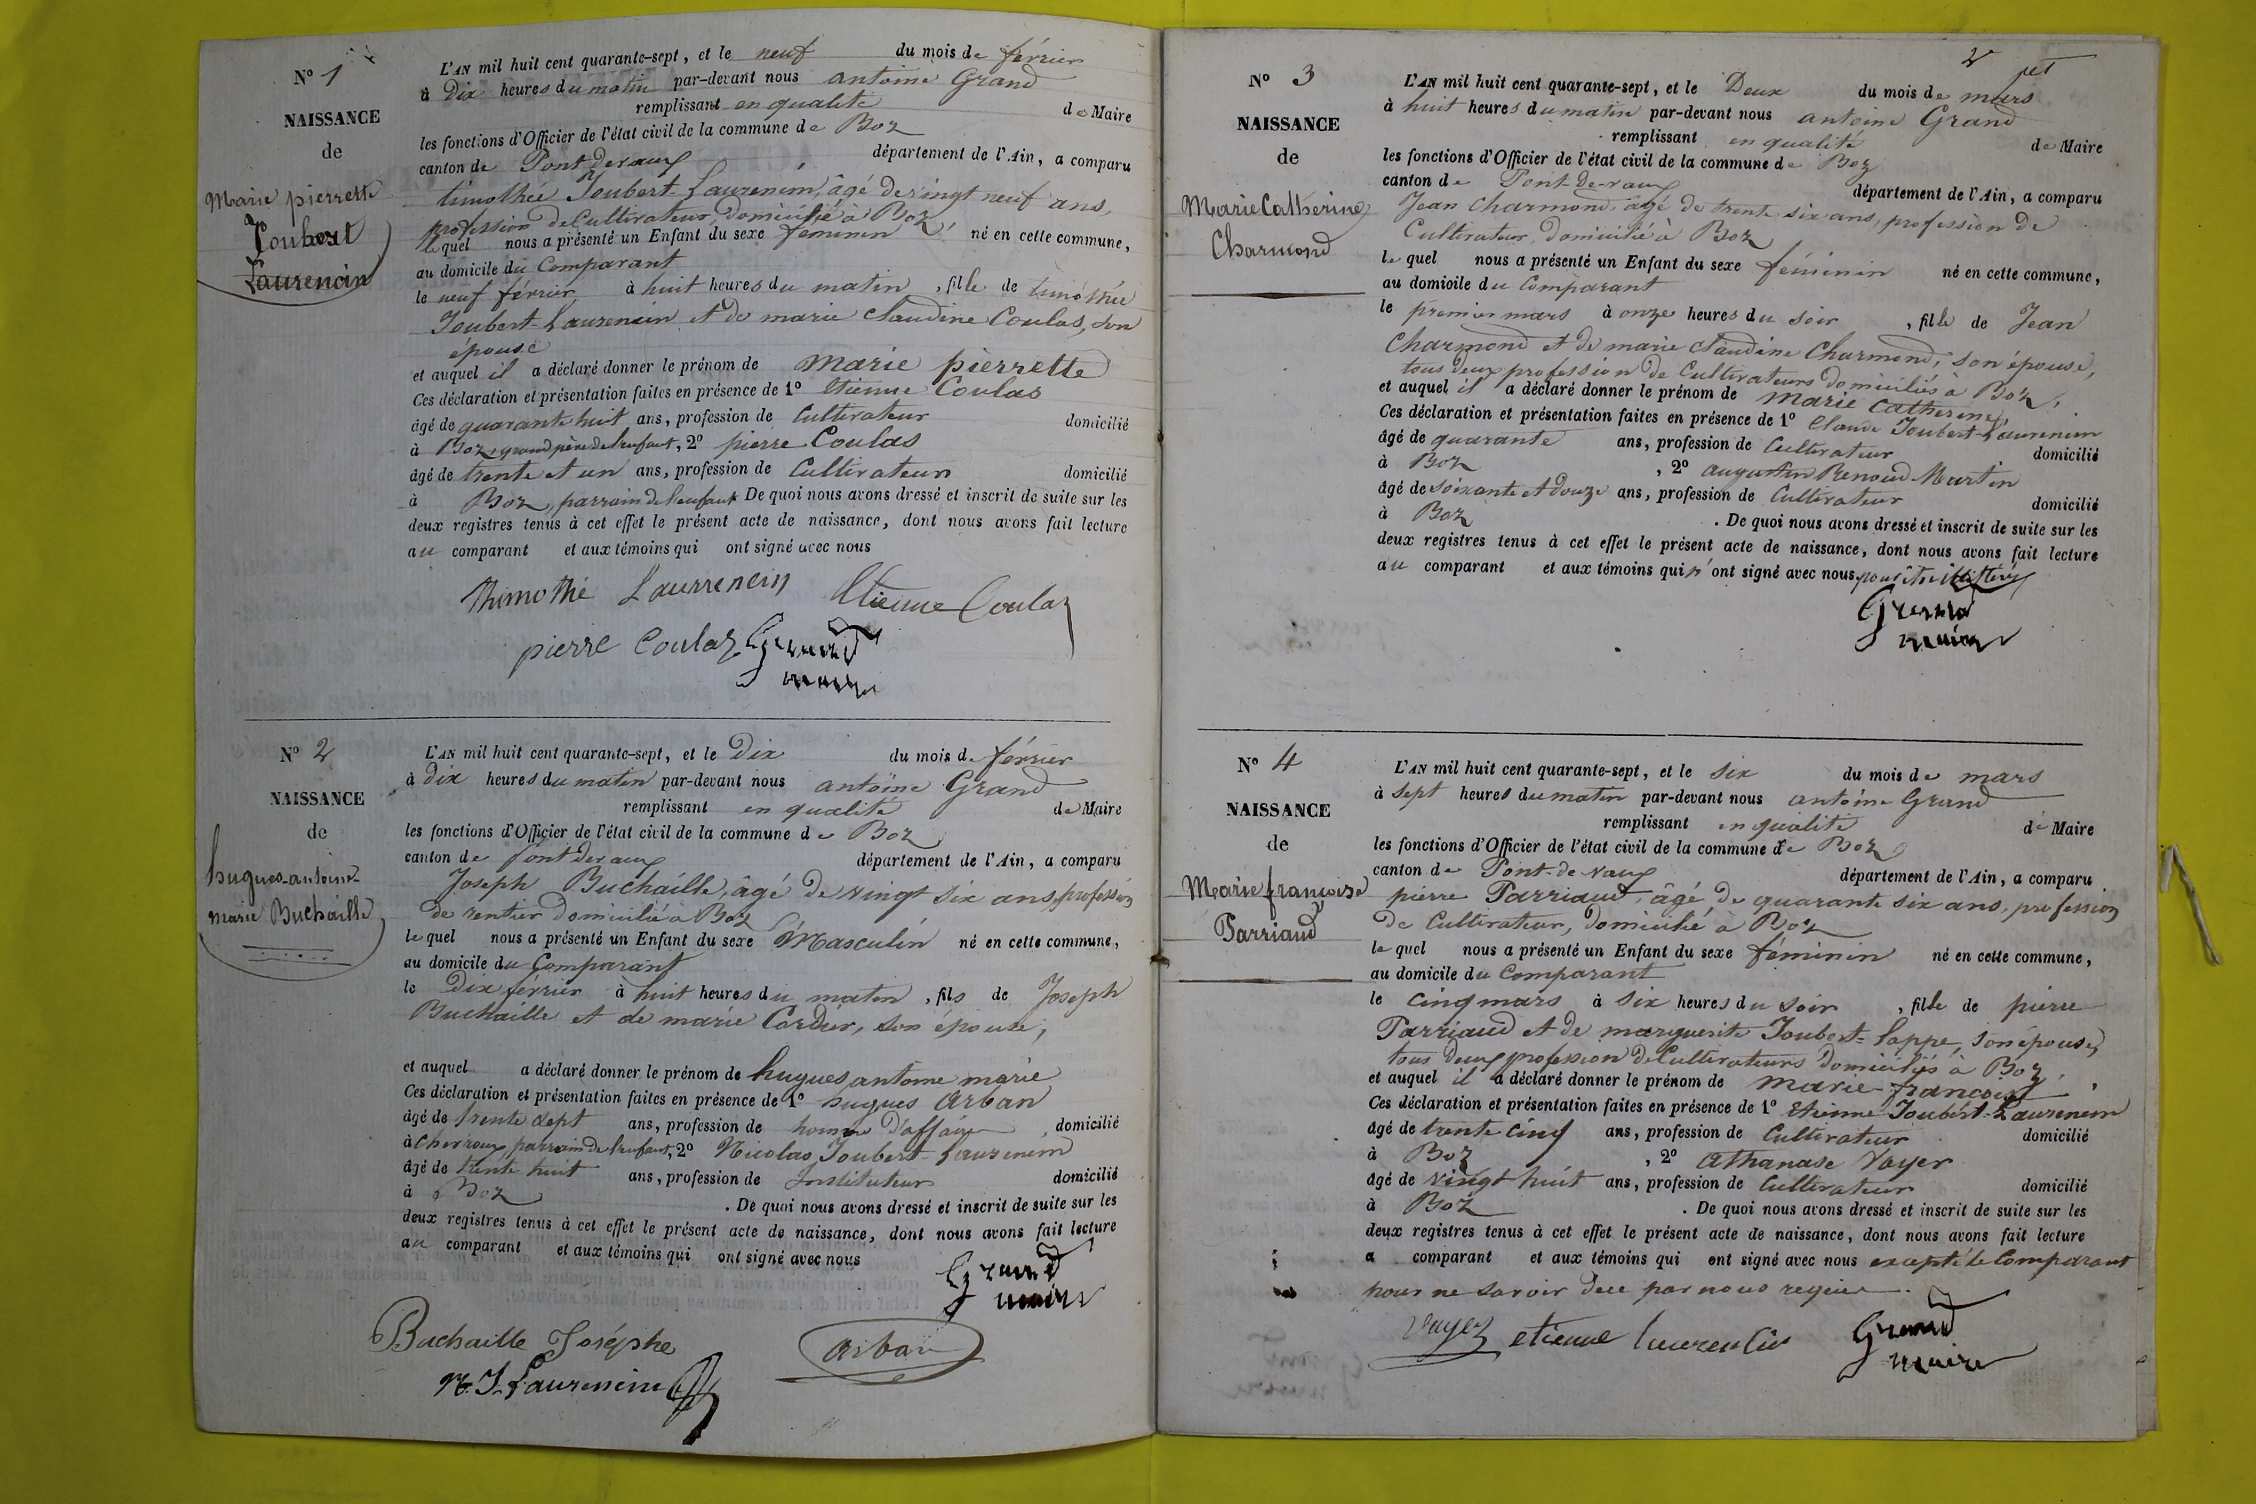 N° 1
NAISSANCE
de
Marie pierrette
Joubert
Laurencin
L'AN mil huit cent quarante-sept, et le neuf du mois de février
à Dix heures du matin par-devant nous antoine Grand
remplissant en qualité de Maire
les fonctions d'Officier de l'état civil de la commune de Boz
canton de Pont devaux département de l'Ain, a comparu
timothée Joubert-Laurencin, âgé de vingt neuf ans,
profession de Cultivateur, Domicilié à Boz
lequel nous a présenté un Enfant du sexe féminin né en cette commune,
au domicile du Comparant
le neuf février à huit heures du matin, fille de timothée
Joubert-Laurencin et de marie Claudine Coulas, son
épouse
et auquel il a déclaré donner le prénom de marie pierrette
Ces déclaration et présentation faites en présence de 1° Etienne Coulas
âgé de quarante huit ans, profession de Cultivateur domicilié
à Boz, grand père de l'enfant, 2° pierre Coulas
âgé de trente et un ans, profession de Cultivateur domicilié
à Boz, parrain de l'enfant De quoi nous avons dressé et inscrit de suite sur les
deux registres tenus à cet effet le présent acte de naissance, dont nous avons fait lecture
au comparant et aux témoins qui ont signé avec nous
thimothé Laurrencin Etienne Coulaz
pierre Coulaz Grand
maire
N° 2
NAISSANCE
de
hugues-antoine-
marie Buchaille
L'AN mil huit cent quarante-sept, et le Dix du mois de février
à dix heures du matin par-devant nous antoine Grand
remplissant en qualité de Maire
les fonctions d'Officier de l'état civil de la commune de Boz
canton de pont devaux département de l'Ain, a comparu
Joseph Buchaille, âgé de vingt six ans, profession
de rentier domicilié à Boz
lequel nous a présenté un Enfant du sexe Masculin né en cette commune,
au domicile du Comparant
le Dix février à huit heures du matin, fils de Joseph
Buchaille et de marie Cordier, son épouse,
et auquel a déclaré donner le prénom de hugues antoine marie
Ces déclaration et présentation faites en présence de 1° hugues Arban
âgé de trente sept ans, profession de homme D'affaire domicilié
à Chevroux, parrain de l'enfant, 2° Nicolas Joubert-Laurencin
âgé de trente huit ans, profession de Instituteur domicilié
à Boz . De quoi nous avons dressé et inscrit de suite sur les
deux registres tenus à cet effet le présent acte de naissance, dont nous avons fait lecture
au comparant et aux témoins qui ont signé avec nous
Grand
maire
Buchaille Joséphe Arban
N. J. Laurencin
2
N° 3
NAISSANCE
de
Marie Catherine
Charmond
L'AN mil huit cent quarante-sept, et le Deux du mois de mars
à huit heures du matin par-devant nous antoine Grand
remplissant en qualité de Maire
les fonctions d'Officier de l'état civil de la commune de Boz
canton de Pont-de-vaux département de l'Ain, a comparu
Jean Charmond, âgé de trente six ans, profession de
Cultivateur, domicilié à Boz
lequel nous a présenté un Enfant du sexe féminin né en cette commune,
au domicile du Comparant
le premier mars à onze heures du soir, fille de Jean
Charmond et de marie Claudine Charmond, son épouse,
tous deux profession de Cultivateurs domiciliés à Boz,
et auquel il a déclaré donner le prénom de marie Catherine
Ces déclaration et présentation faites en présence de 1° Claude Joubert-Laurencin
âgé de quarante ans, profession de Cultivateur domicilié
à Boz, 2° augustin Renoud Martin
âgé de soixante et douze ans, profession de Cultivateur domicilié
à Boz . De quoi nous avons dressé et inscrit de suite sur les
deux registres tenus à cet effet le présent acte de naissance, dont nous avons fait lecture
au comparant et aux témoins qui n'ont signé avec nous pour être
Grand
maire
N° 4
NAISSANCE
de
Marie françoise
Parriaud
L'AN mil huit cent quarante-sept, et le six du mois de mars
à sept heures du matin par-devant nous antoine Grand
remplissant en qualité de Maire
les fonctions d'Officier de l'état civil de la commune de Boz
canton de Pont-de-Vaux département de l'Ain, a comparu
pierre Parriaud, âgé de quarante six ans, profession
de Cultivateur, Domicilié à Boz
lequel nous a présenté un Enfant du sexe féminin né en cette commune,
au domicile du Comparant
le cinq mars à six heures du soir, fille de pierre
Parriaud et de marguerite Joubert-Lappe, son épouse,
tous deux profession de Cultivateurs Domiciliés à Boz,
et auquel il a déclaré donner le prénom de marie-françoise
Ces déclaration et présentation faites en présence de 1° Etienne Joubert-Laurencin
âgé de trente cinq ans, profession de Cultivateur domicilié
à Boz, 2° Athanase Voyer
âgé de vingt huit ans, profession de Cultivateur domicilié
à Boz . De quoi nous avons dressé et inscrit de suite sur les
deux registres tenus à cet effet le présent acte de naissance, dont nous avons fait lecture
a comparant et aux témoins qui ont signé avec nous excepté le Comparant
pour ne savoir de ce par nous requis.
etienne laurencin Grand
maire